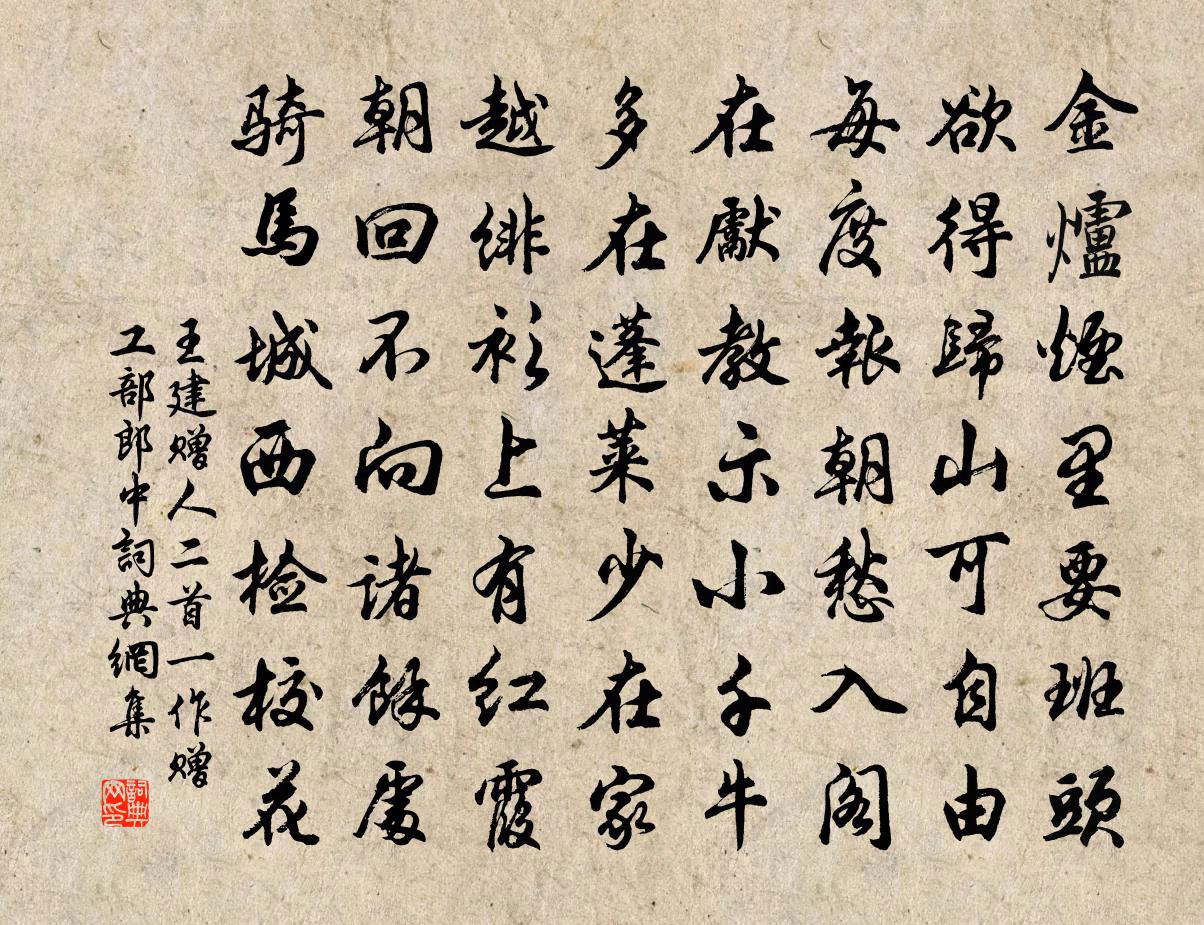 金爐煙里要班頭
欲得歸山可自由
每度報朝愁入閣
在獻教示小千牛
多在蓬萊少在家
越緋衫上有红霞
朝回不向諸餘處
騎馬城西檢校花
王建赠人二首一作赠
工部郎中詞典網集
詞典
网印